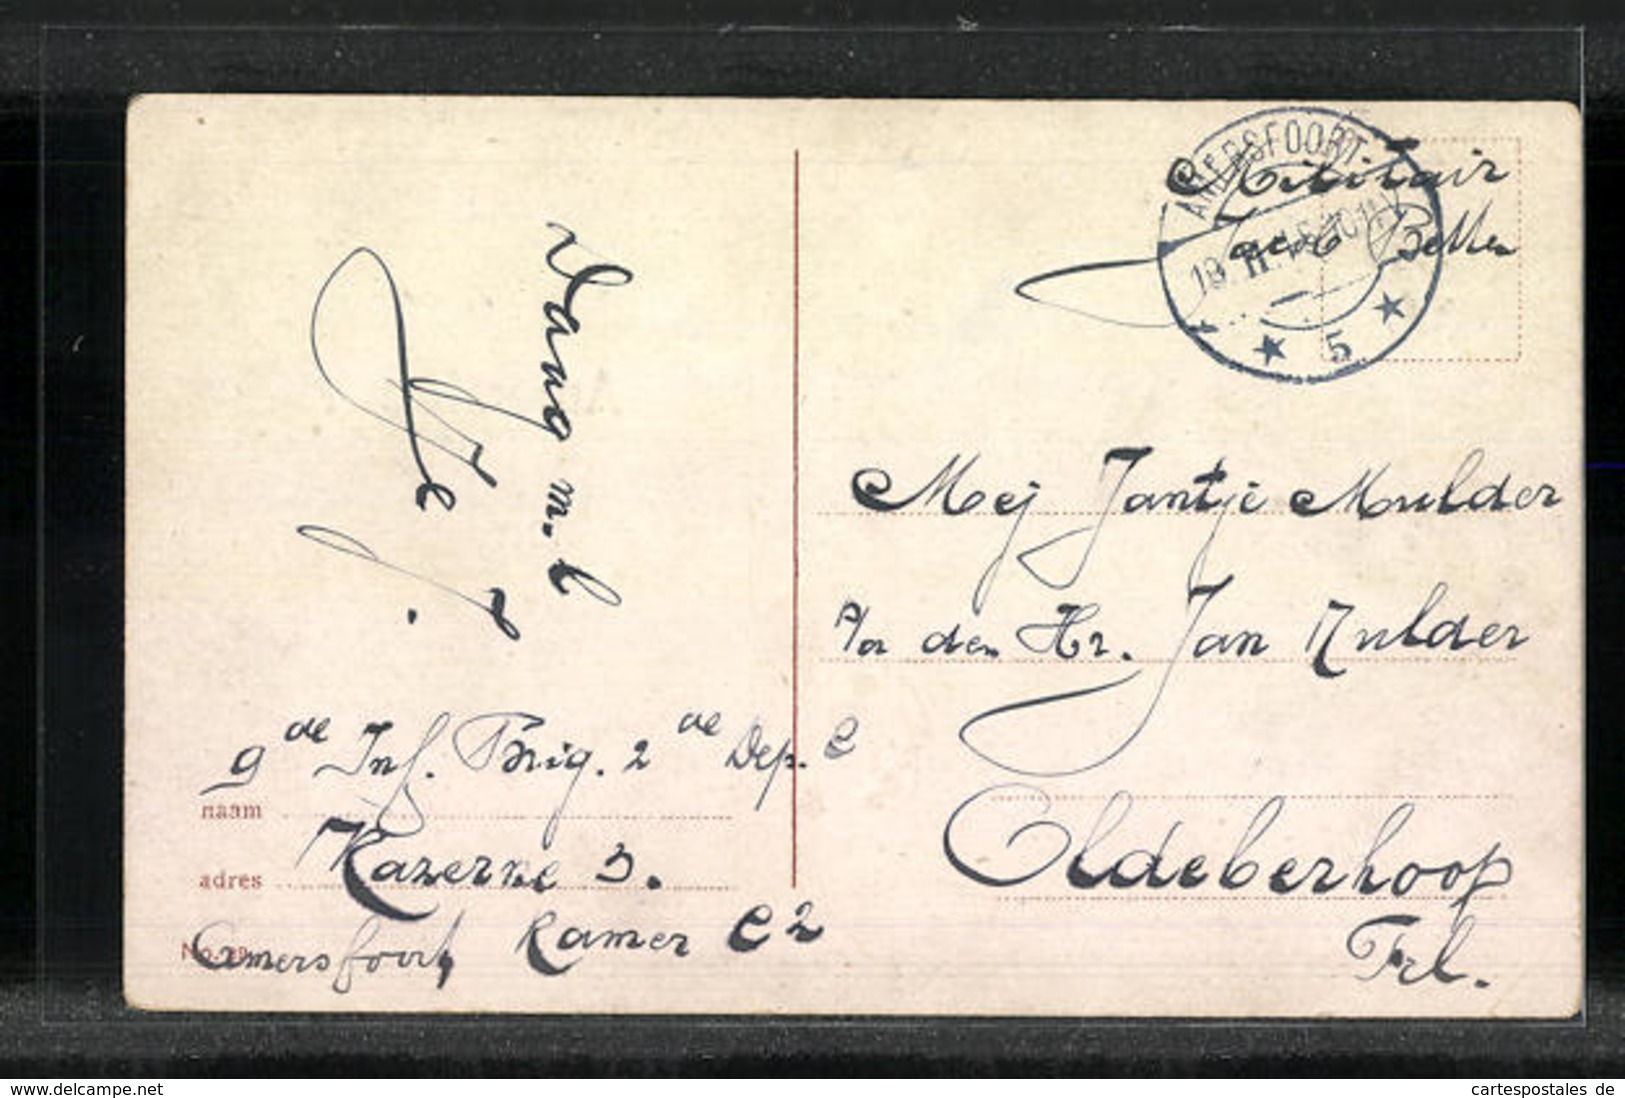 Daag m. l
9de Inf. Brig. 2de Dep. C
naam
Kazerne 3.
adres
Amersfoort, Kamer C2
No.
AMERSFOORT
Militair
Jacob
5
Mej Jantje Mulder
p/a den Hr. Jan Mulder
Oldeberkoop
Frl.
www.delcampe.net
cartespostales de